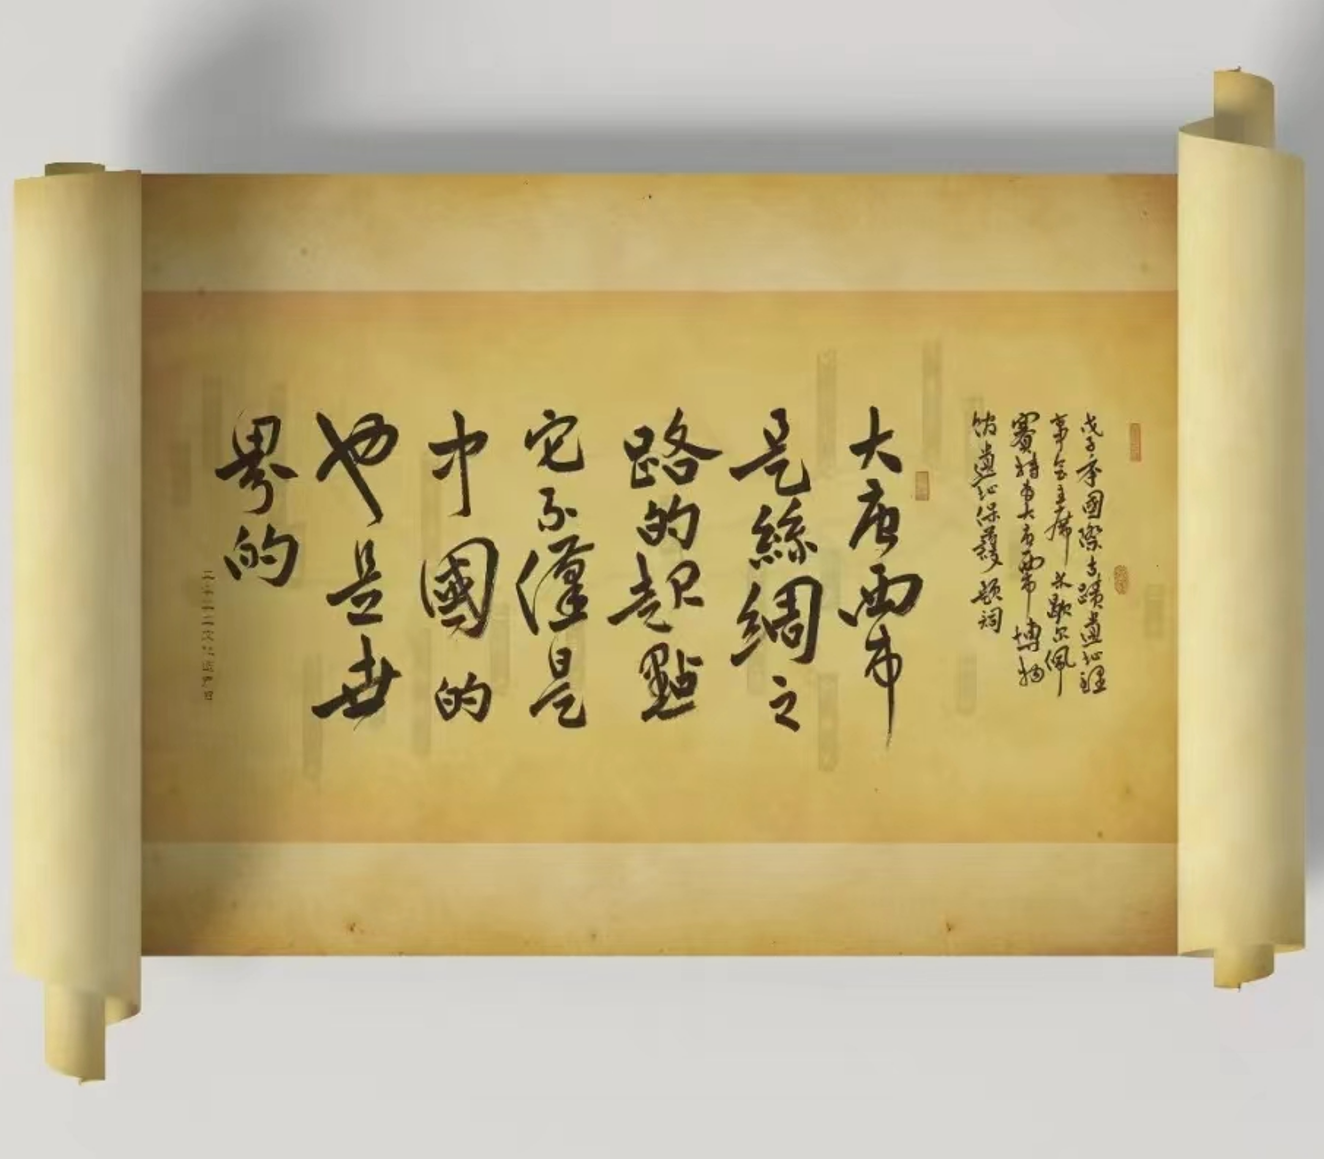 戊子季國際古蹟遺址理
事会主席米歇尔佩
賽特为大唐西市博物
馆遺址保護题词
大唐西市
是絲綢之
路的起點
它不僅是
中國的
也是世
界的